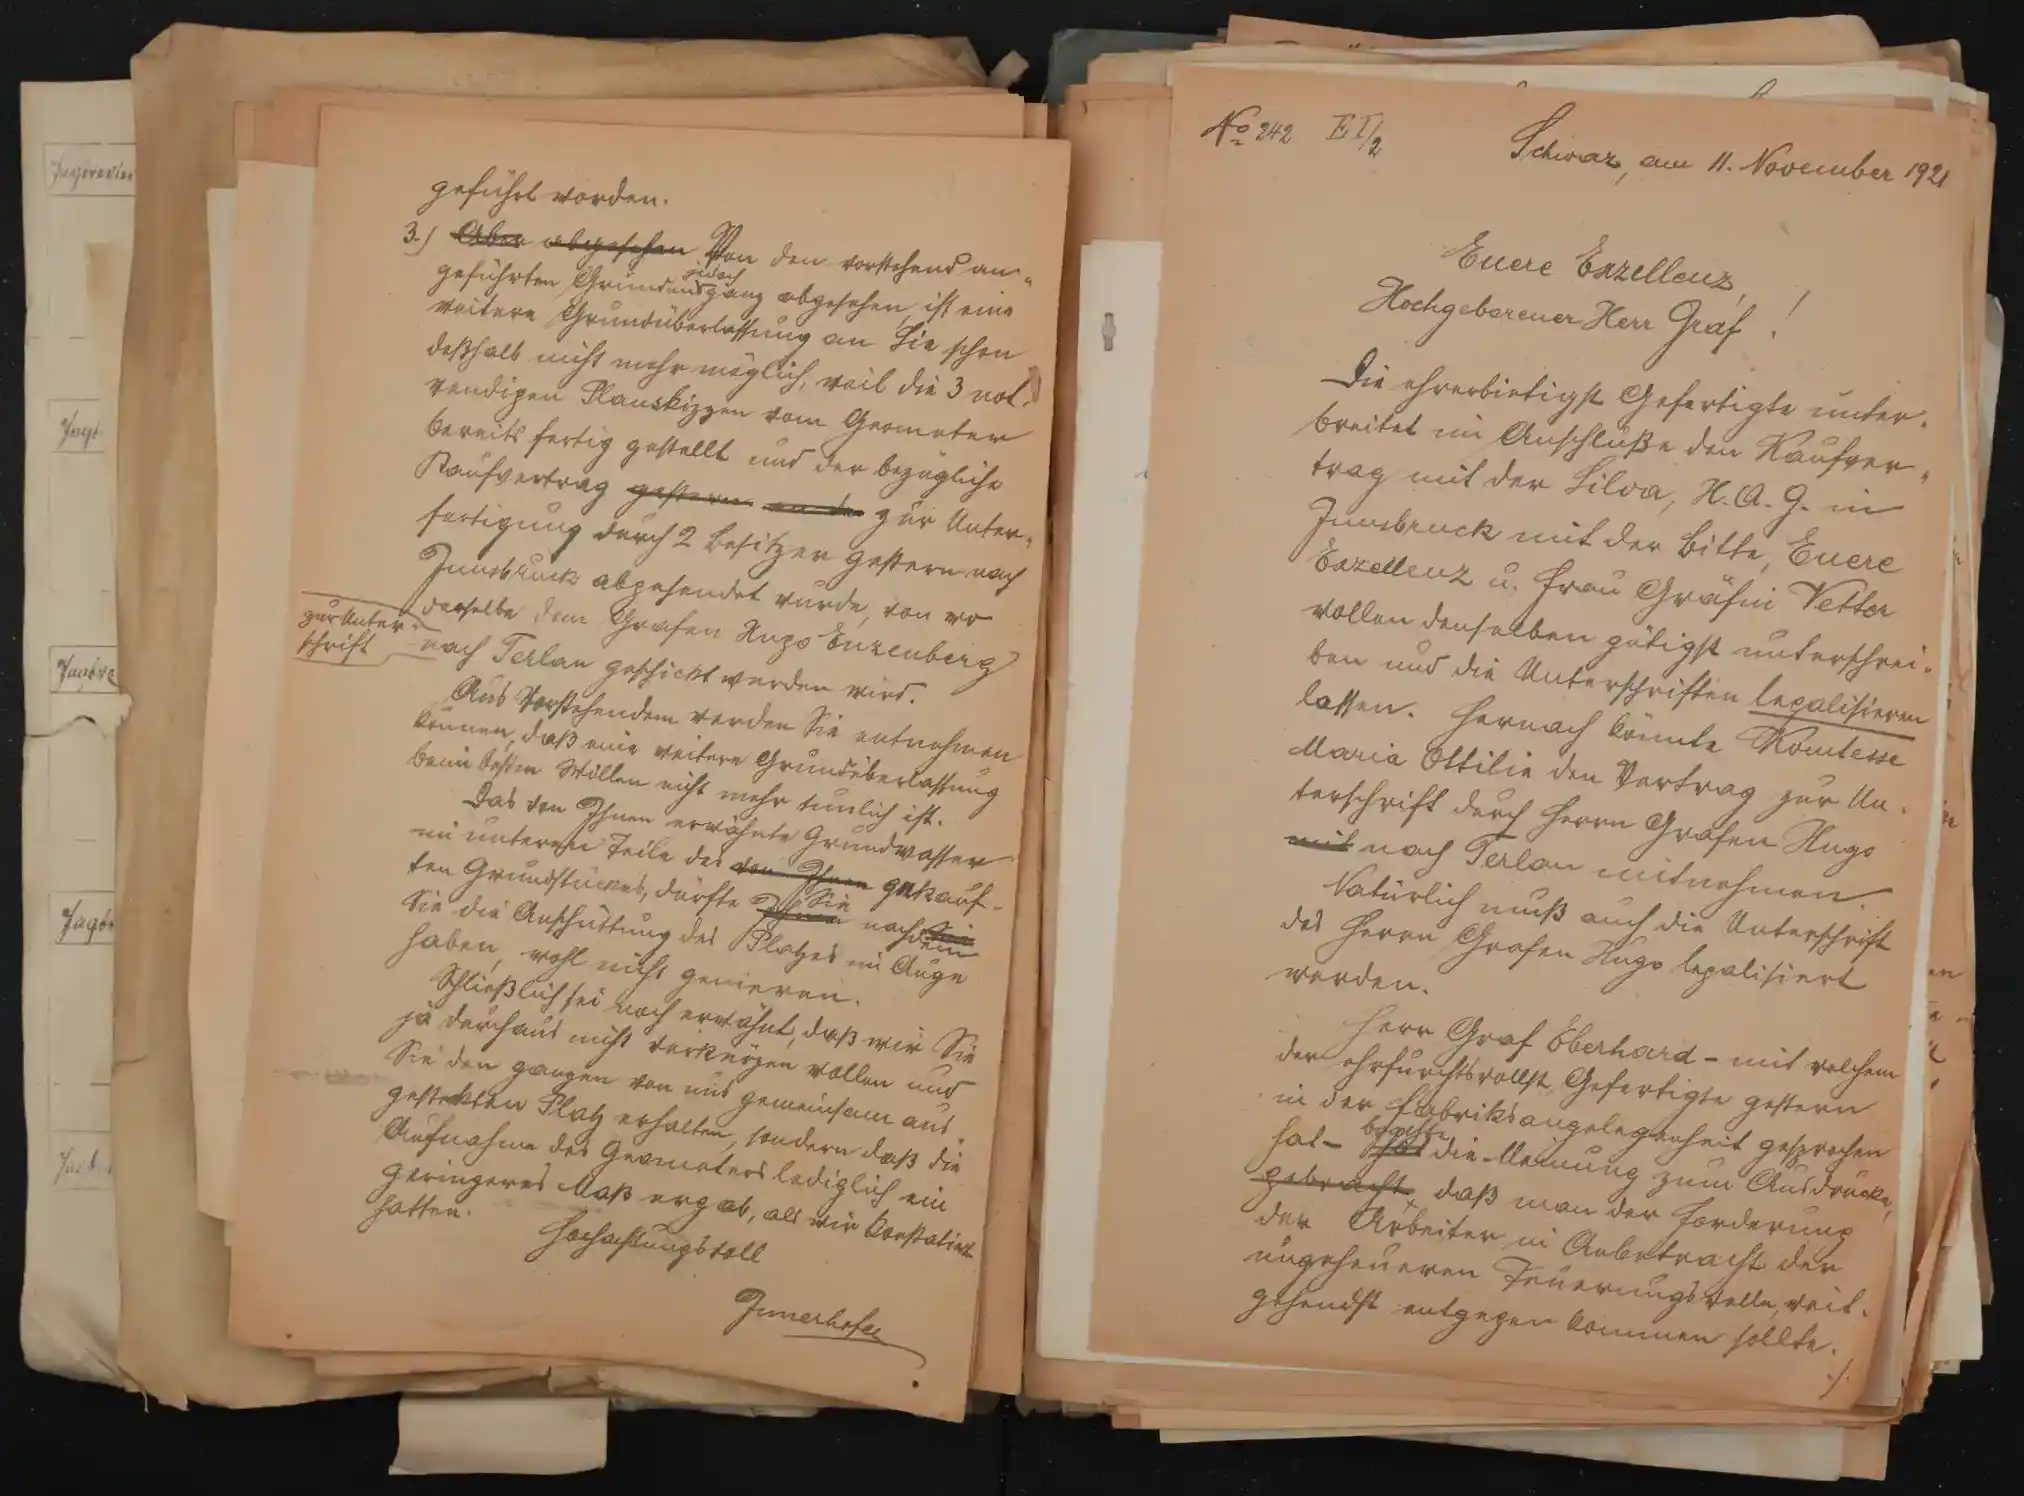 geführt worden.
3.) Aber abgesehen Von den vorstehend an-
geführten Gründen jedoch ganz abgesehen, ist eine
weitere Grundüberlassung an Sie schon
deßhalb nicht mehr möglich, weil die 3 not-
wendigen Planskizzen vom Geometer
bereits fertig gestellt und der bezügliche
Kaufvertrag gestern an de zur Unter-
fertigung durch 2 Besitzer gestern nach
Innsbruck abgesendet wurde, von wo
derselbe dem Grafen Hugo Enzenberg
zur Unter-
schrift
nach Terlan geschickt werden wird.
Aus Vorstehendem werden Sie entnehmen
können, daß eine weitere Grundüberlassung
beim besten Willen nicht mehr tunlich ist.
Das von Ihnen erwähnte Grundwasser
im unteren Teile des von Ihnen gekauf-
ten Grundstückes, dürfte Ihnen Sie nachdem
Sie die Anschüttung des Platzes im Auge
haben, wohl nicht genieren.
Schließlich sei noch erwähnt, daß wir Sie
ja durchaus nicht verkürzen wollen und
Sie den ganzen von uns gemeinsam aus-
gesteckten Platz erhalten, sondern daß die
Aufnahme des Geometers lediglich ein
geringeres Maß ergab, als wir konstatiert
hatten.
Hochachtungsvoll
Innerhofer
No 242 E I/2
Schwaz, am 11. November 1921
Euere Exzellenz,
Hochgeborener Herr Graf!
Die ehrerbietigst Gefertigte unter-
breitet im Anschluße den Kaufver-
trag mit der Silva, H. A. G. in
Innsbruck mit der Bitte, Euere
Exzellenz u. Frau Gräfin Vetter
wollen denselben gütigst unterschrei-
ben und die Unterschriften legalisieren
lassen. Hernach könnte Komtesse
Maria Ottilie den Vertrag zur Un-
terschrift durch Herrn Grafen Hugo
mit nach Terlan mitnehmen.
Natürlich muß auch die Unterschrift
des Herrn Grafen Hugo legalisiert
werden.
Herr Graf Eberhard - mit welchem
der ehrfurchtsvollst Gefertigte gestern
in der Fabriksangelegenheit gesprochen
hat - hat brachte die Meinung zum Ausdrucke,
gebracht, daß man der Forderung
der Arbeiter in Anbetracht der
ungeheueren Teuerungswelle, weit-
gehendst entgegen kommen sollte.
./.